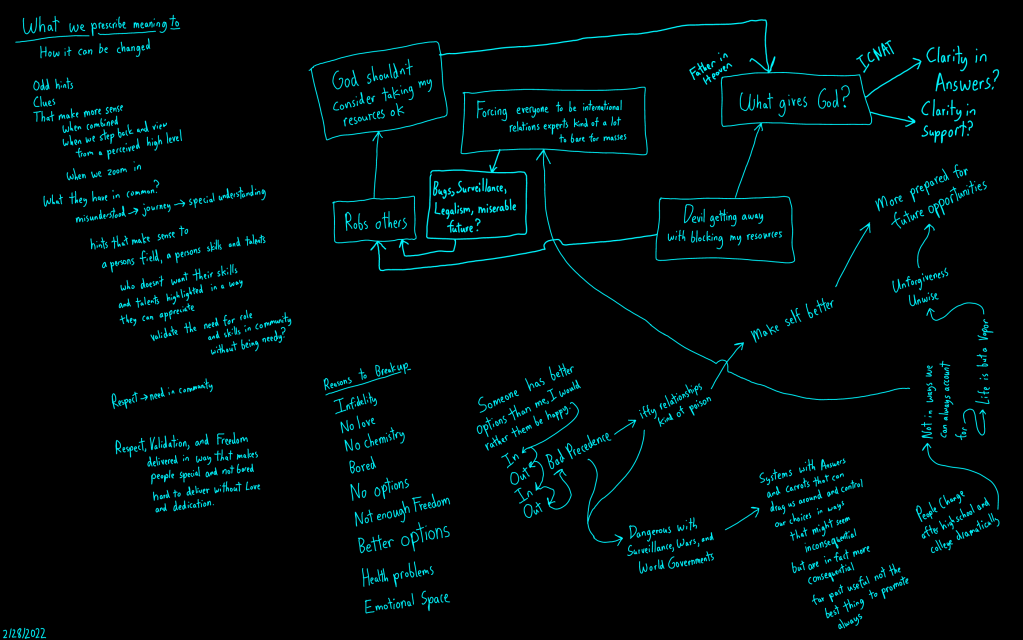 What we prescribe meaning to
How it can be changed
Odd hints
Clues
That make more sense
when combined
when we step back and view
from a perceived high level
when we zoom in
What they have in common?
misunderstood → journey → special understanding
hints that make sense to
a persons field, a persons skills and talents
who doesn't want their skills
and talents highlighted in a way
they can appreciate
validate the need for role
and skills in community
without being needy?
Respect → need in community
Respect, Validation, and Freedom
delivered in way that makes
people special and not bored
hard to deliver without Love
and dedication.
2/28/2022
God shouldnt
consider taking my
resources ok
Forcing everyone to be international
relations experts kind of a lot
to bare for masses
Robs others
Bugs, Surveillance,
Legalism, miserable
future?
Father in
Heaven
What gives God?
ICNAT
Clarity in
Answers?
Clarity in
support?
Devil getting away
with blocking my resources
Reasons to Breakup
Infidelity
No love
No chemistry
Bored
No options
Not enough Freedom
Better options
Health problems
Emotional Space
Someone has better
options than me, I would
rather them be happy.
In
Out
In
Out
Bad Precedence
iffy relationships
kind of poison
Make self better
More prepared for
future opportunities
Unforgiveness
Unwise
Life is but a Vapor
Not in ways we
can always account
for
People Change
after high school and
college dramatically
Dangerous with
Surveillance, Wars, and
World Governments
Systems with Answers
and carrots that can
drag us around and control
our choices in ways
that might seem
inconsequential
but are in fact more
consequential
far past useful not the
best thing to promote
always